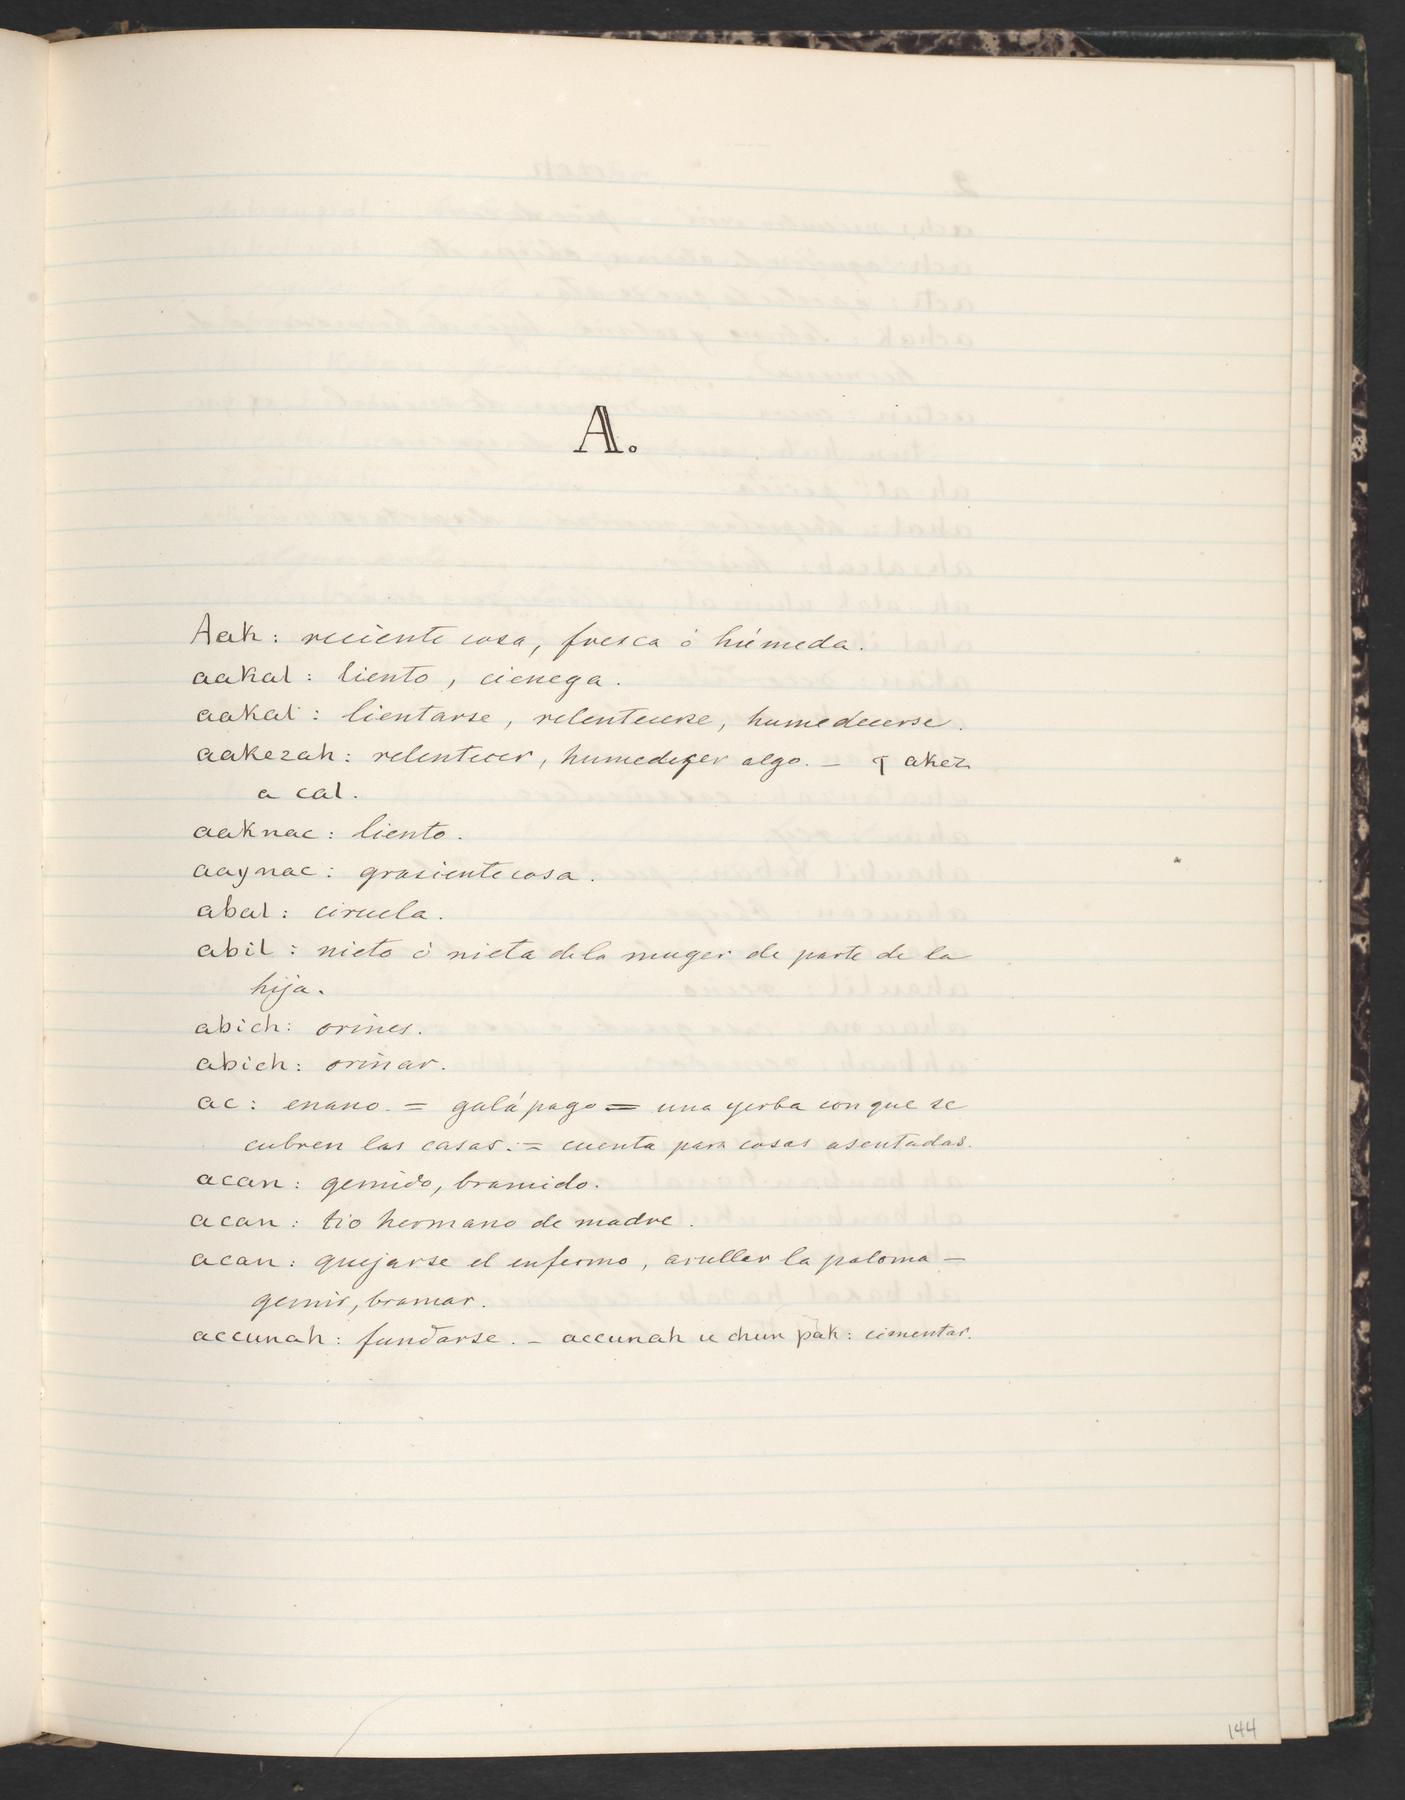 A.
Aak: reciente cosa, fresca ó húmeda.
aakal: liento, cienega.
aakal: lientarse, relentecerse, humedecerse.
aakezah: relentecer, humedeçer algo. — akez
a cal.
aaknac: liento.
aaynac: grasiente cosa.
abal: ciruela.
abil: nieto ó nieta de la muger de parte de la
hija.
abich: orines.
abich: orinar.
ac: enano. = galápago = una yerba con que se
cubren las casas. = cuenta para cosas asentadas.
acan: gemido, bramido.
acan: tio hermano de madre.
acan: quejarse el enfermo, arullar la paloma —
gemir, bramar.
accunah: fundarse. — accunah u chun pak: cimentar.
144